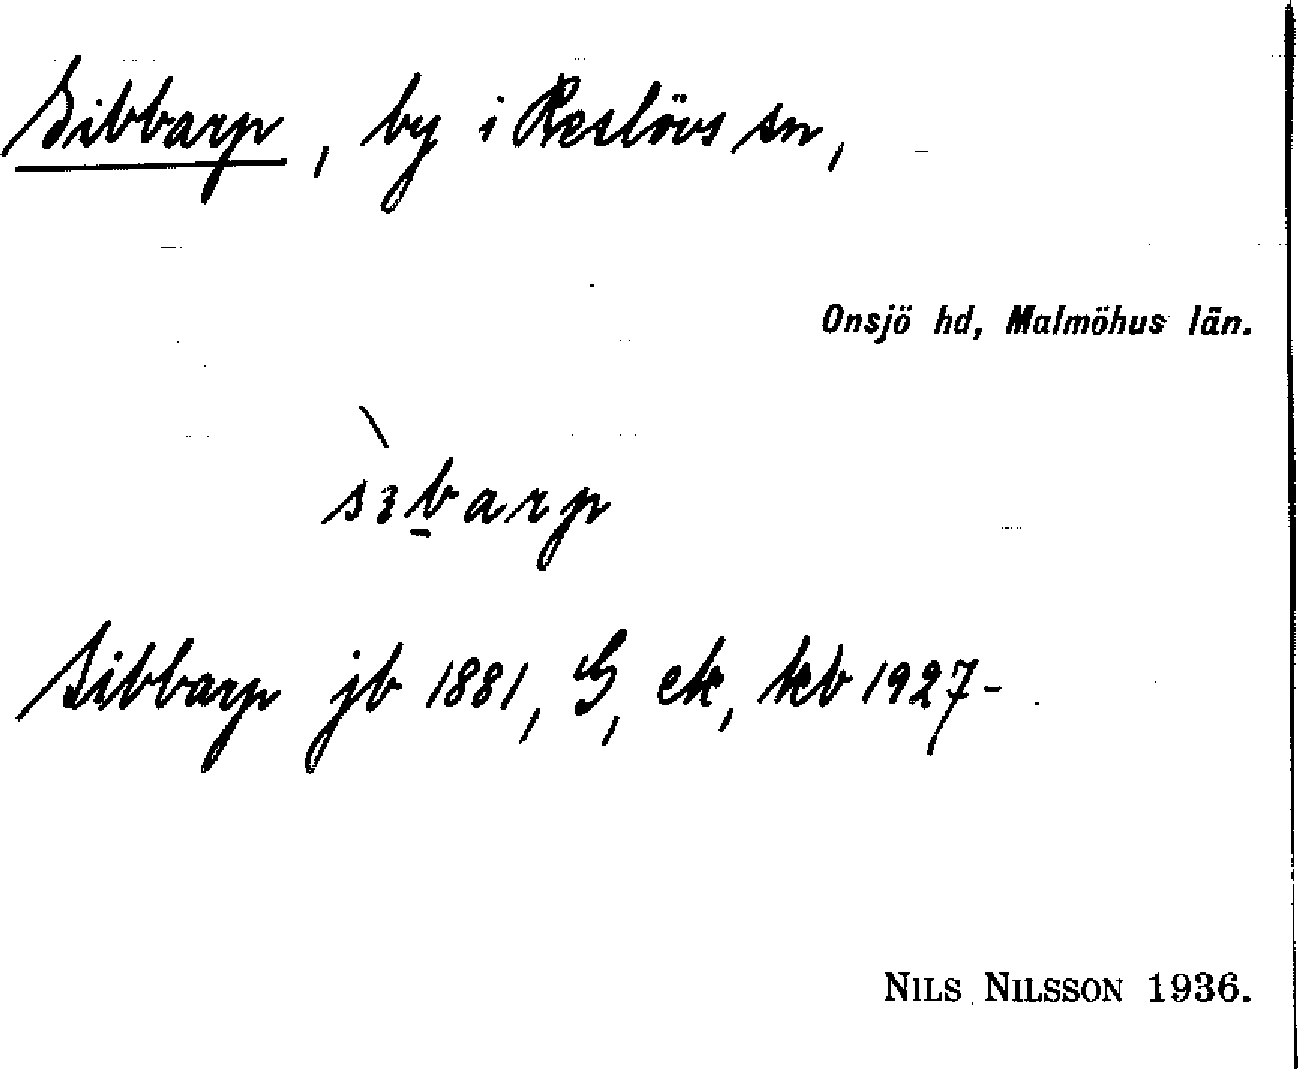 Sibbarp, by i Reslövs sn,
Onsjö hd, Malmöhus län.
sɜb̲arp
Sibbarp jb 1881, G, ek, kb 1927-
NILS NILSSON 1936.